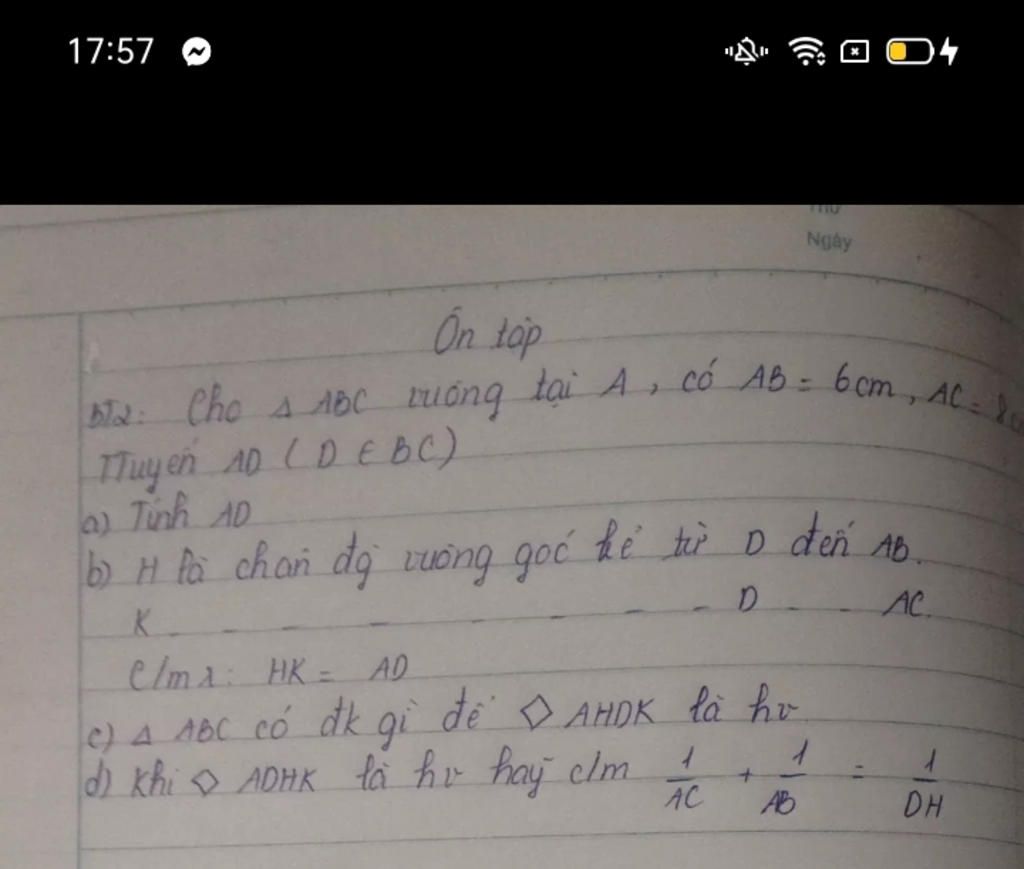 17:57
Thứ
Ngày
Ôn tập
BT2: Cho Δ ABC vuông tại A, có AB = 6cm, AC = 8c
TTuyến AD (D ∈ BC)
a) Tính AD
b) H là chân đg vuông góc kẻ từ D đến AB.
K - - - - - - - D - - AC.
C/m r: HK = AD
c) Δ ABC có đk gì để ◇ AHDK là hv
d) Khi ◇ ADHK là hv hãy c/m 1/AC + 1/AB = 1/DH